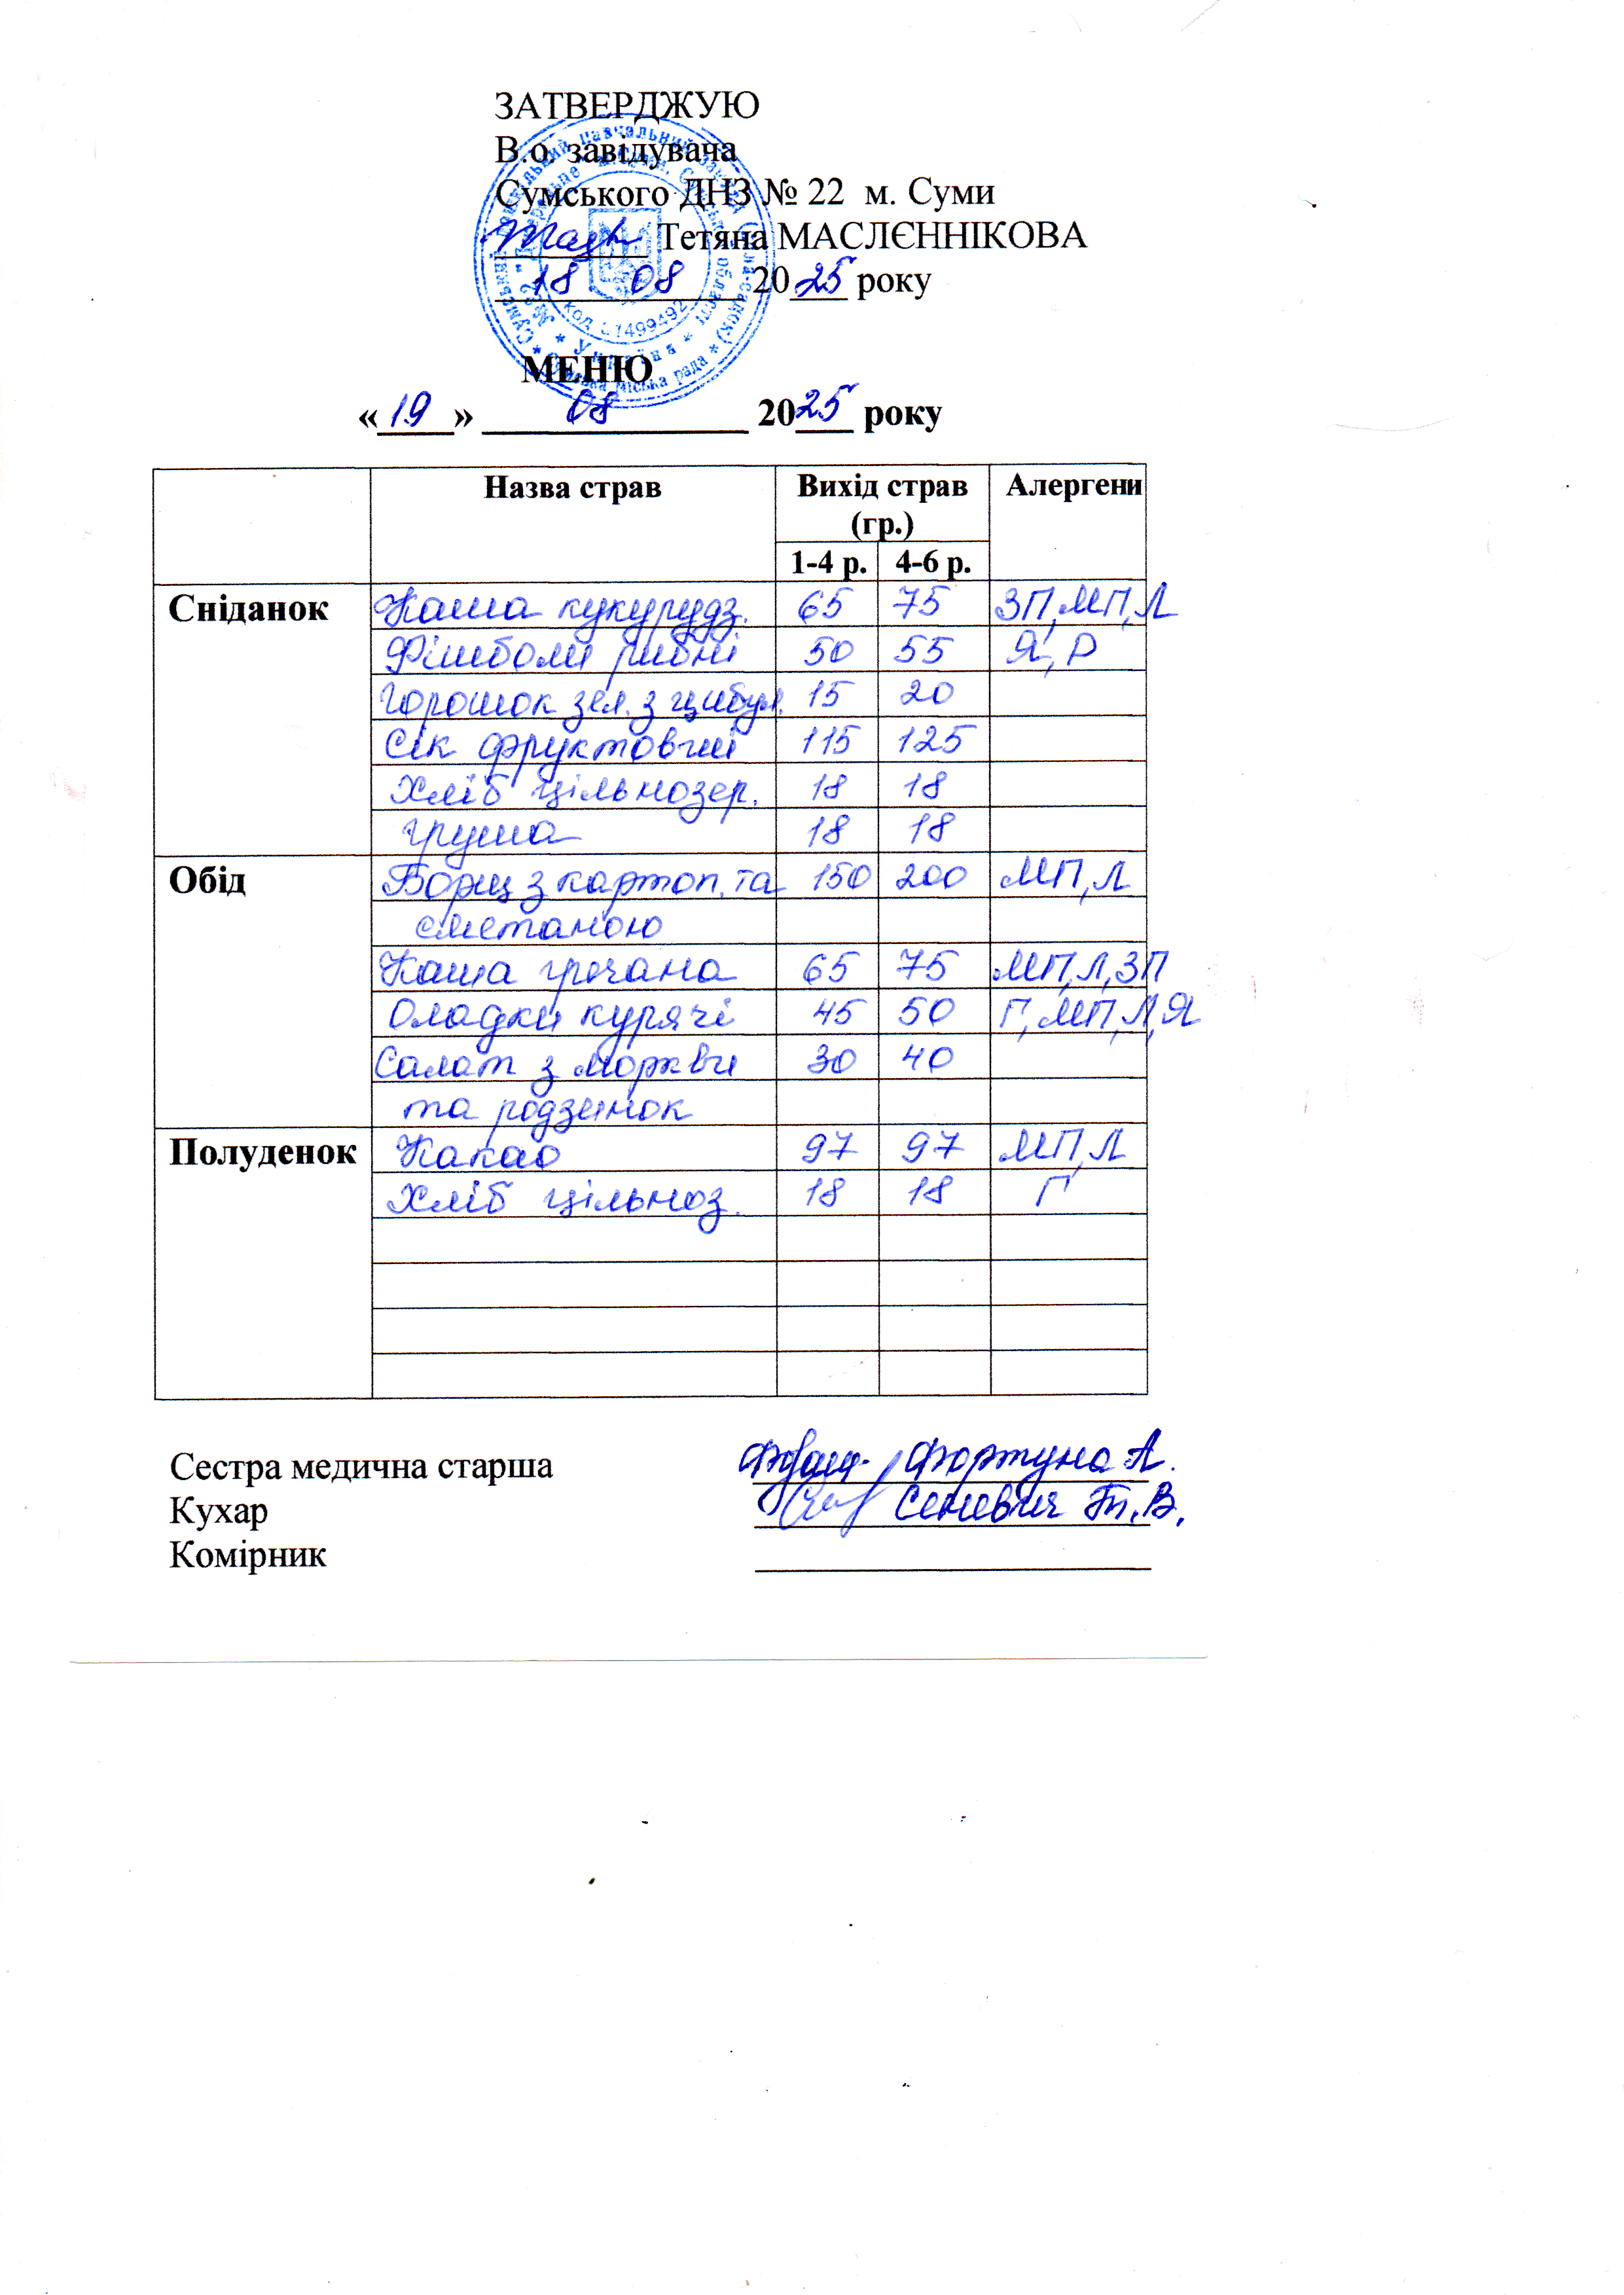 ЗАТВЕРДЖУЮ
В.о. завідувача
Сумського ДНЗ № 22 м. Суми
Тетяна МАСЛЄННІКОВА
18 08 2025 року
МЕНЮ
«19» 08 2025 року
Назва страв Вихід страв (гр.) Алергени
1-4 р. 4-6 р.
Сніданок Каша кукурудз. 65 75 ЗП, МП, Л
Фішболи рибні 50 55 Я, Р
Горошок зел. з цибул. 15 20
Сік фруктовий 115 125
Хліб цільнозер. 18 18
груша 18 18
Обід Борщ з картоп. та 150 200 МП, Л
сметаною
Каша гречана 65 75 МП, Л, ЗП
Оладки курячі 45 50 Г, МП, Л, Я
Салат з моркви 30 40
та родзинок
Полуденок Какао 97 97 МП, Л
Хліб цільноз. 18 18 Г
Сестра медична старша Фортуна А.
Кухар Сеневич Т.В.
Комірник